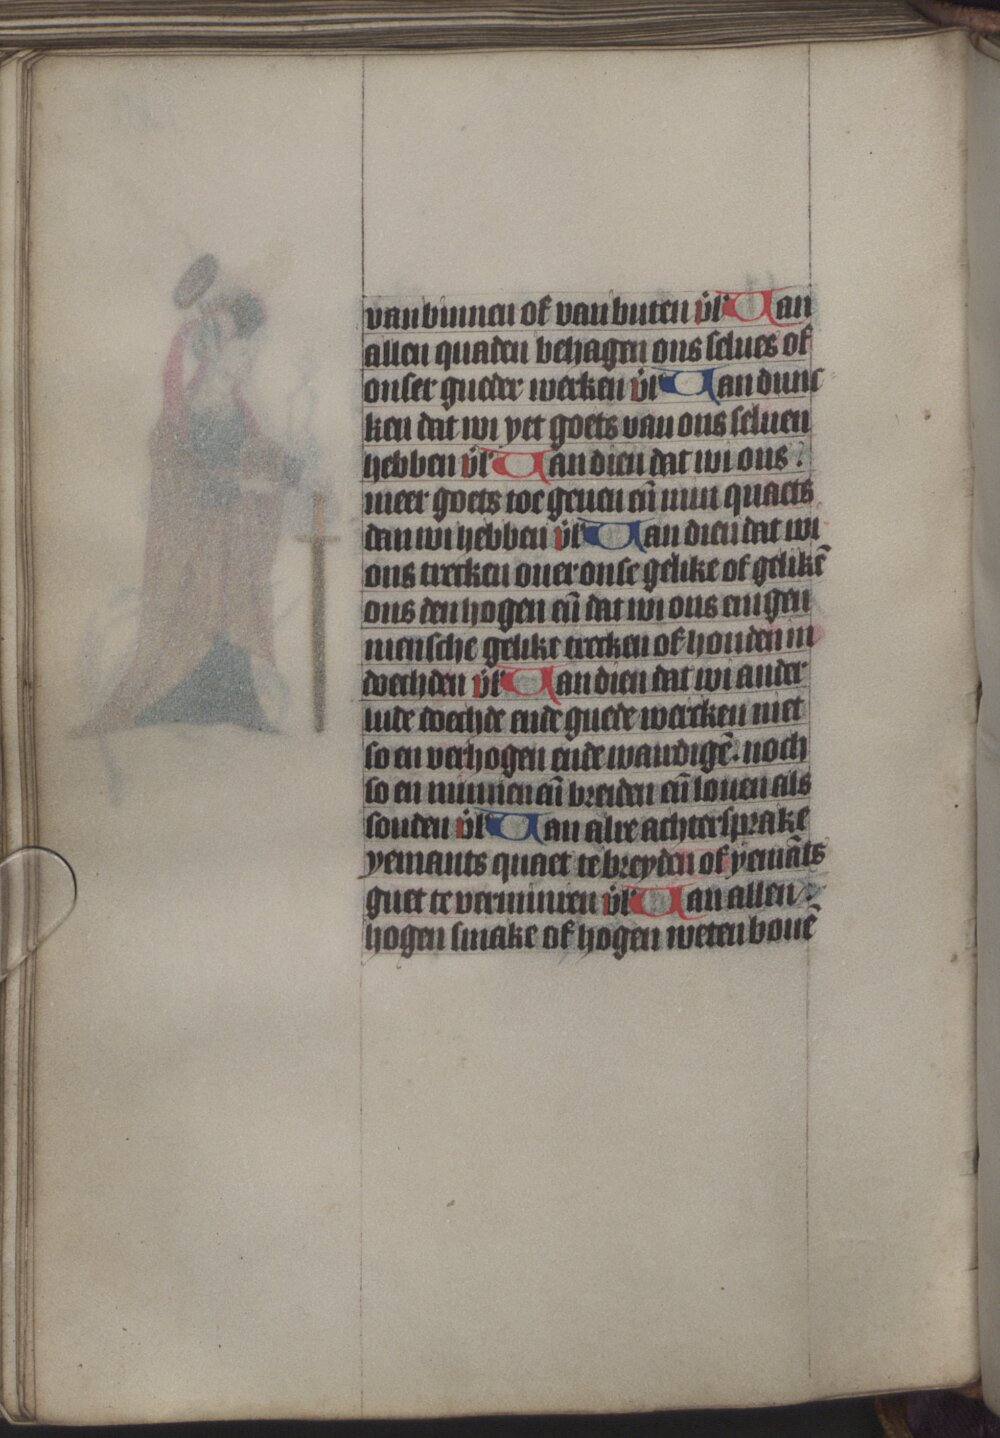 van binnen of van buten v̈l' Van
allen quaden behagen ons selues of
onser gueder werken v̈l' Van dunc
ken dat wi yet goets van ons seluen
hebben v̈l' Van dien dat wi ons
meer goets toe geuen en̄ min quaets
dan wi hebben v̈l' Van dien dat wi
ons trecken ouer onse gelike of gelikē
ons den hogen en̄ dat wi ons enigen
mensche gelike trecken of houden in
doechden v̈l' Van dien dat wi ander
lude doechde ende guede wercken niet
so en verhogen ende waudigē. noch
so en minnen en̄ breiden en̄ louen als
souden v̈l' Van alre achtersprake
yemants quaet te breyden of yemāts
guet te verminren v̈l' Van allen
hogen smake of hogen weten bouē